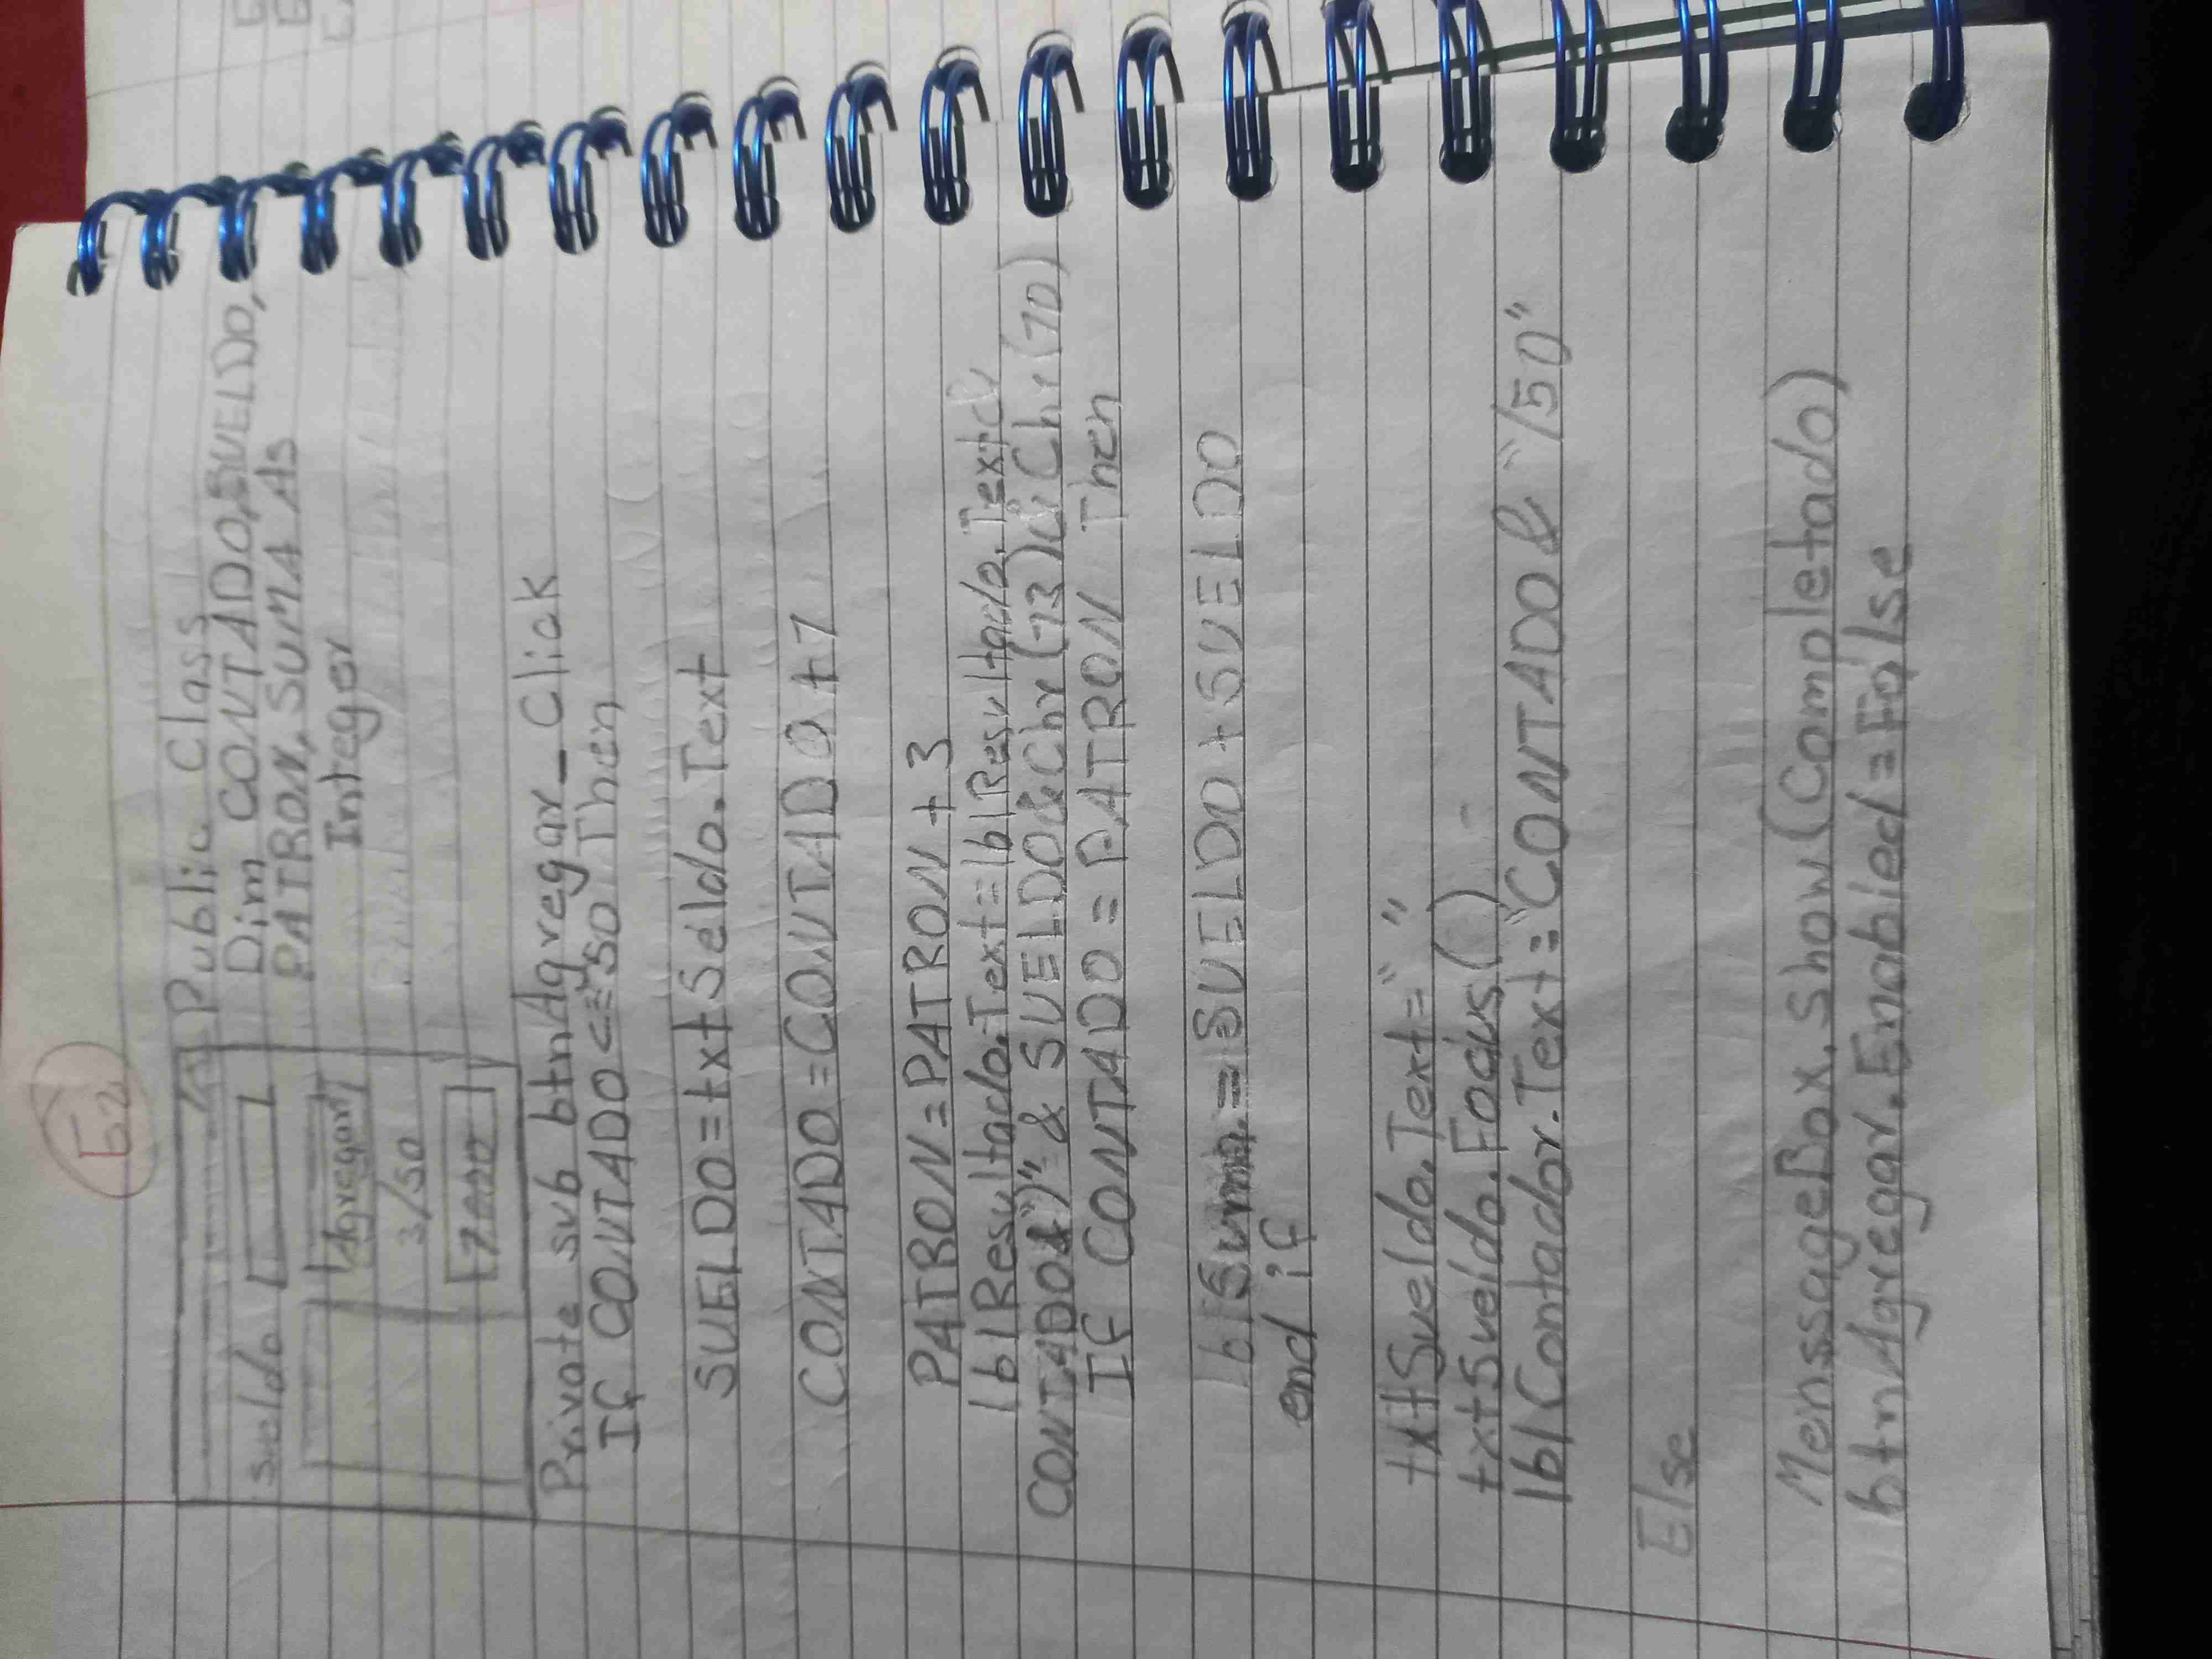 52
Public Class
Dim CONTADO, SUELDO,
PATRON, SUMA As
Integer
sueldo
Agregar
3/50
7000
Private sub btnAgregar_Click
If CONTADO <= 50 Then
SUELDO = txtSeldo.Text
CONTADO = CONTADO + 1
PATRON = PATRON + 3
lblResultado.Text = lblResultado.Text &
CONTADO & ")" & SUELDO & Chr(13) & Chr(10)
If CONTADO = PATRON Then
lblSuma = SUELDO + SUELDO
end if
txtSueldo.Text = " "
txtSueldo.Focus()
lblContador.Text = "CONTADO & "/50"
Else
MenssageBox.Show(Completado)
btnAgregar.Enabled = False